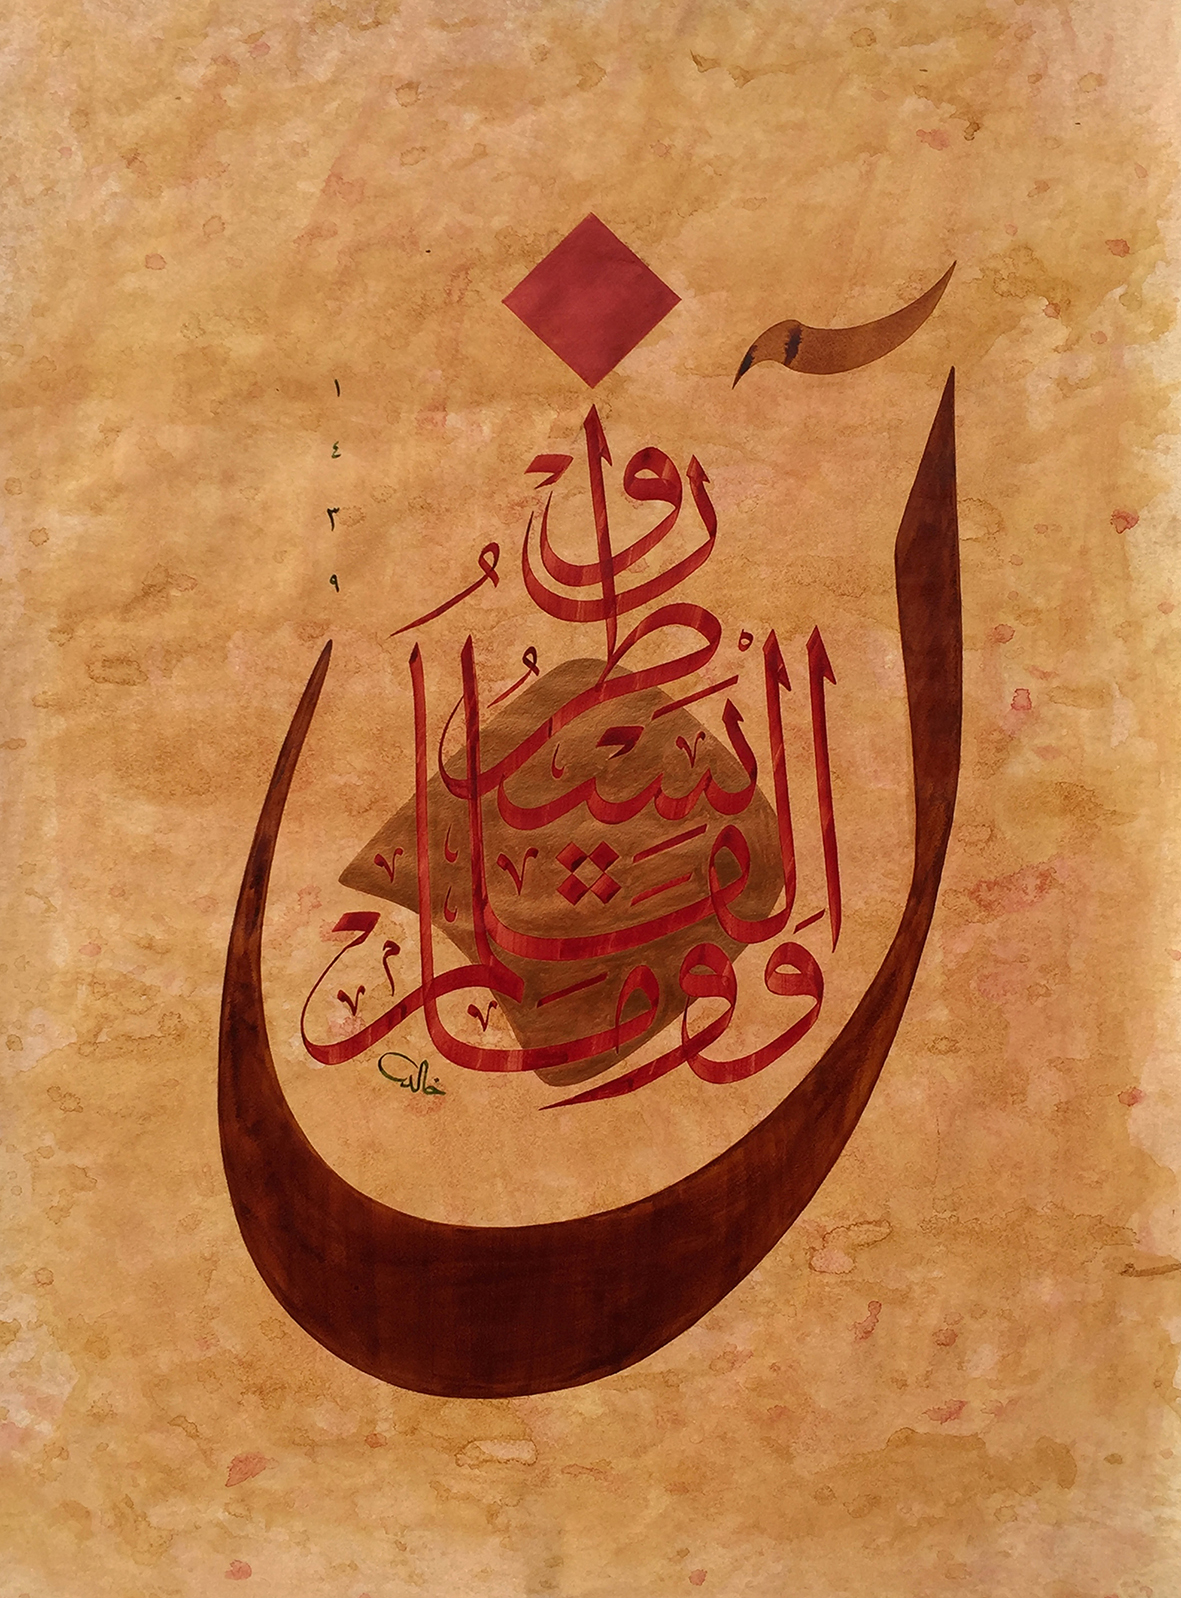 نٓ وَالْقَلَمِ وَمَا يَسْطُرُونَ
١
٤
٣
٩
خالد